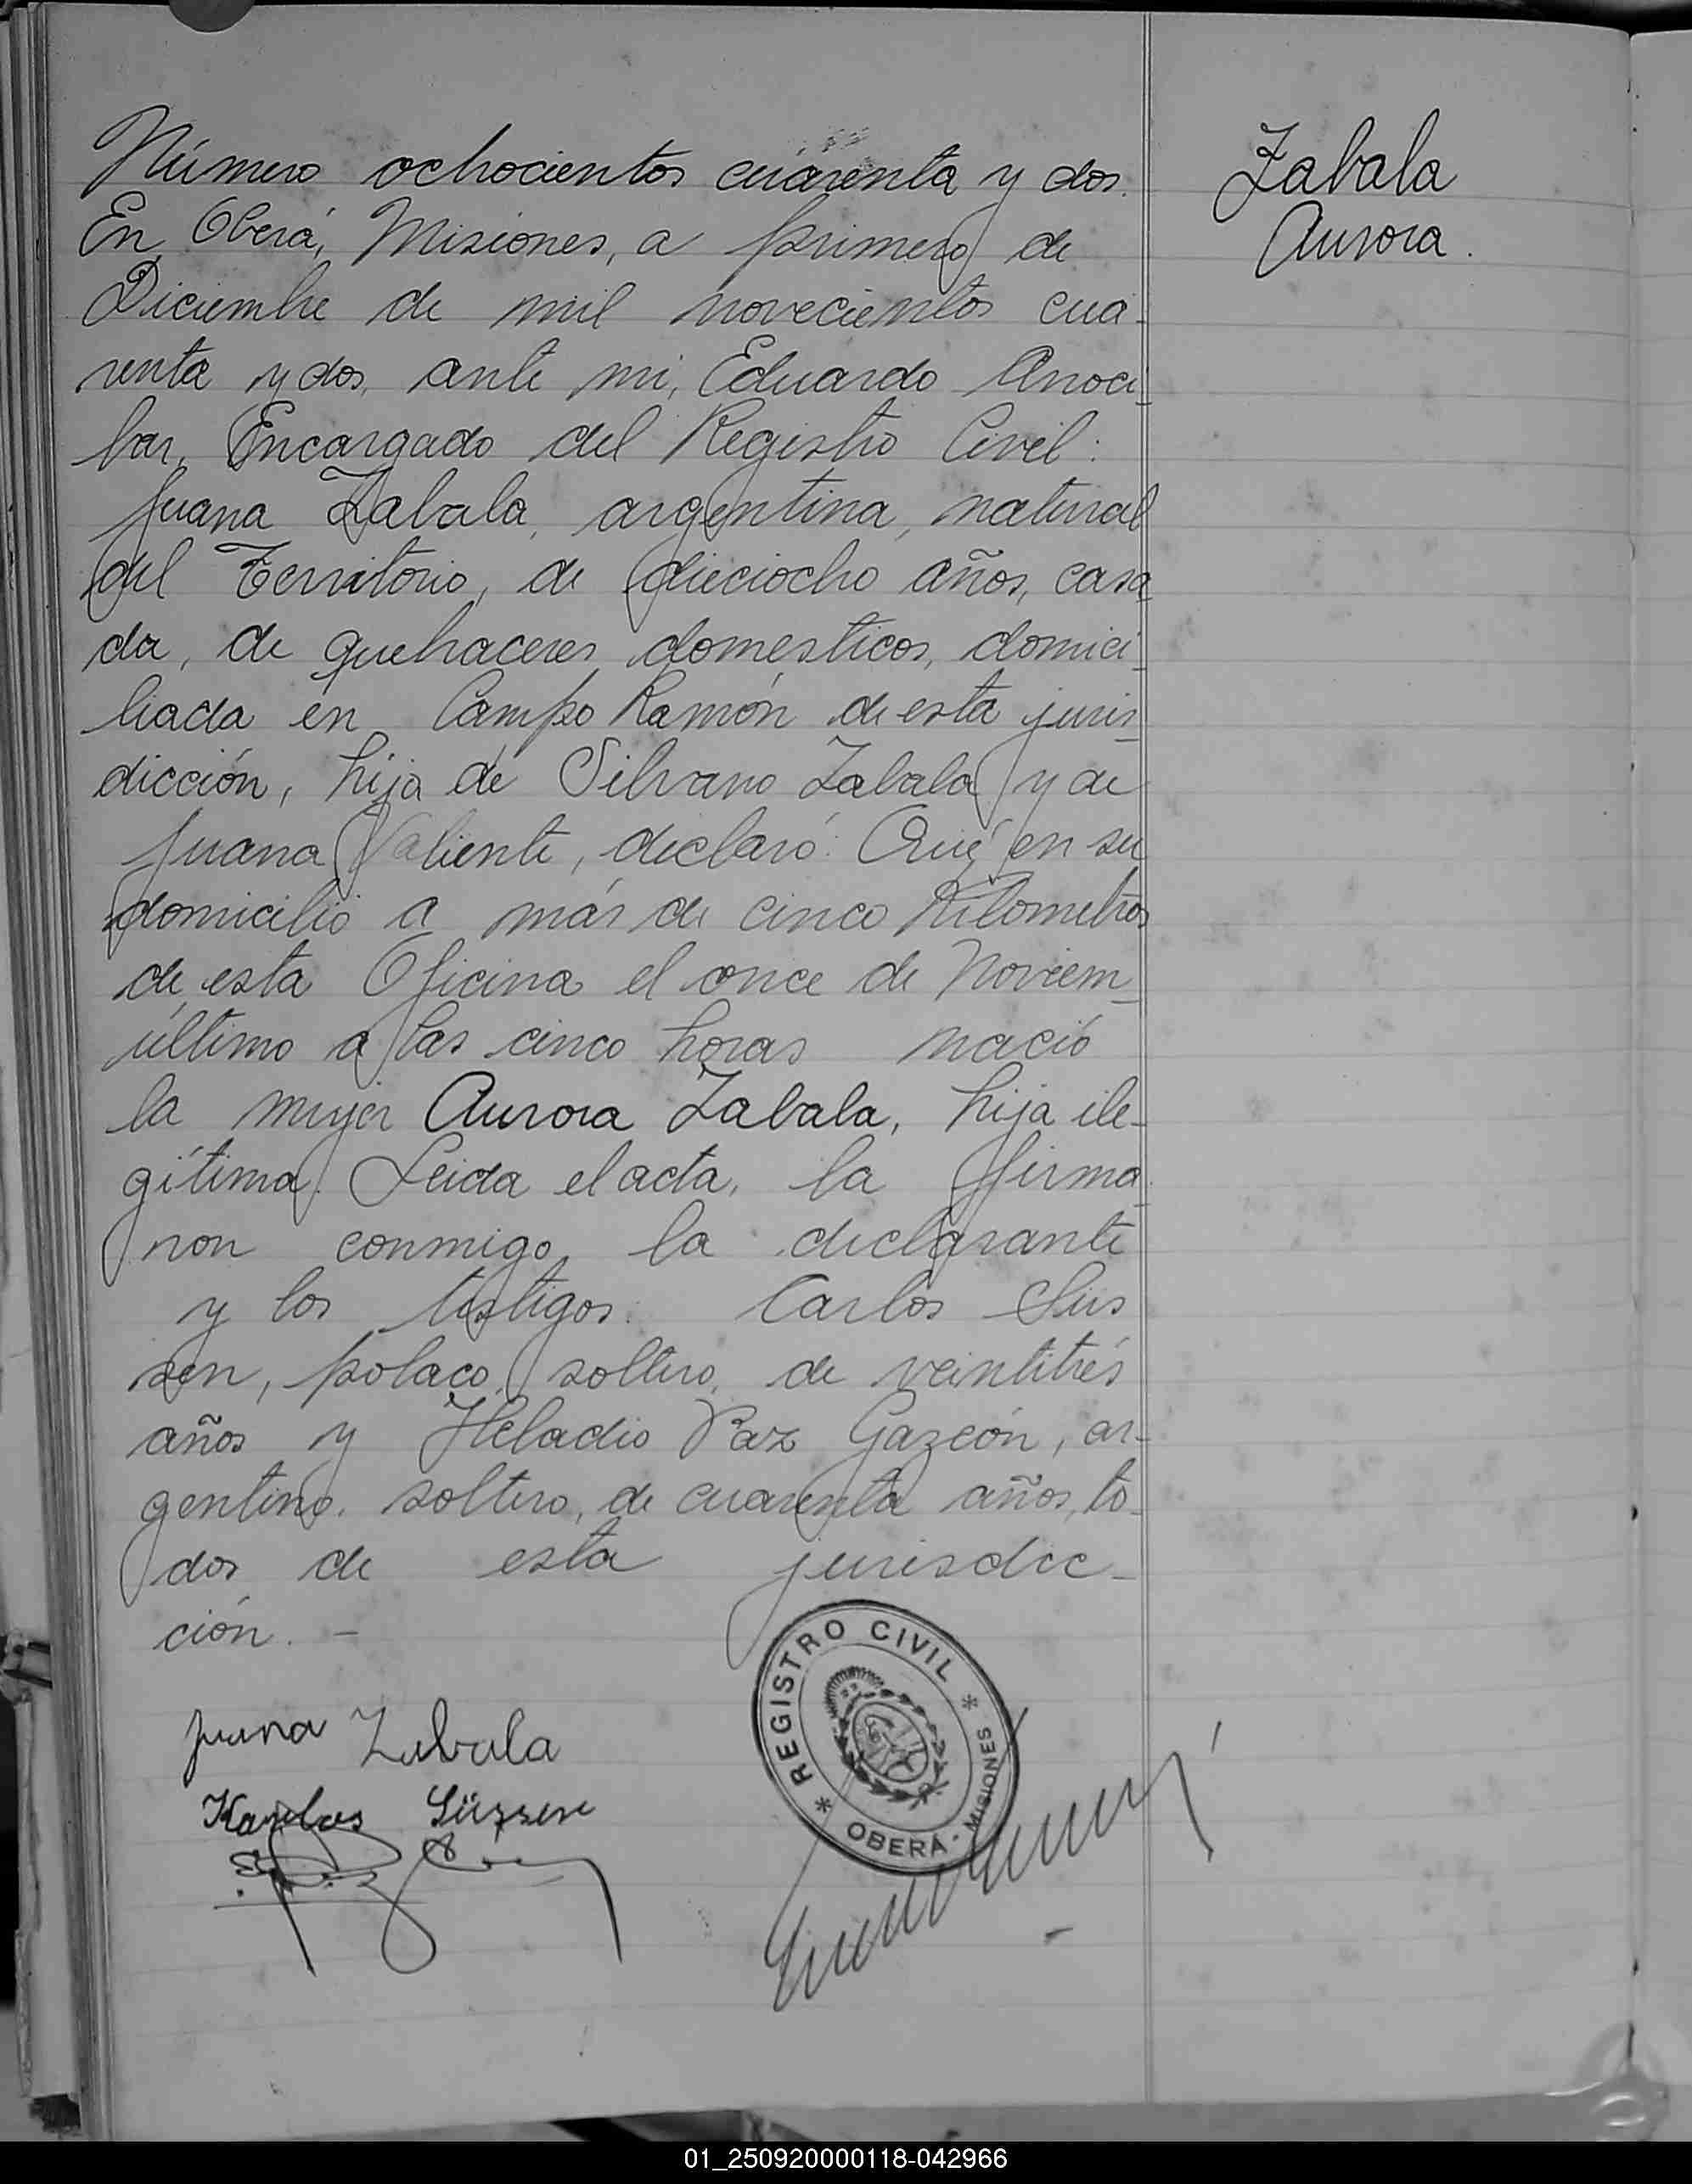 Número ochocientos cuarenta y dos.
Zabala
Aurora.
En Oberá, Misiones, a primero de
Diciembre de mil novecientos cua-
renta y dos, ante mi, Eduardo Anoci-
bar, Encargado del Registro Civil:
Juana Zabala, argentina, natural
del Territorio, de dieciocho años, casa-
da, de quehaceres domesticos, domici-
liada en Campo Ramón de esta juris-
dicción, hija de Silvano Zabala y de
Juana Valiente, declaró: Que, en su
domicilio a más de cinco Kilometros
de esta Oficina el once de Noviem-
último a las cinco horas nació
la mujer Aurora Zabala, hija ile-
gítima. Leida el acta, la firma-
ron conmigo, la declarante
y los testigos: Carlos Süs
sen, polaco, soltero, de veintitrés
años y Heladio Paz Gazcón, ar-
gentino, soltero, de cuarenta años, to-
dos de esta jurisdic-
ción. -
Juana Zabala
Karlos Süssen
* REGISTRO CIVIL *
OBERÁ - MISIONES
01_250920000118-042966